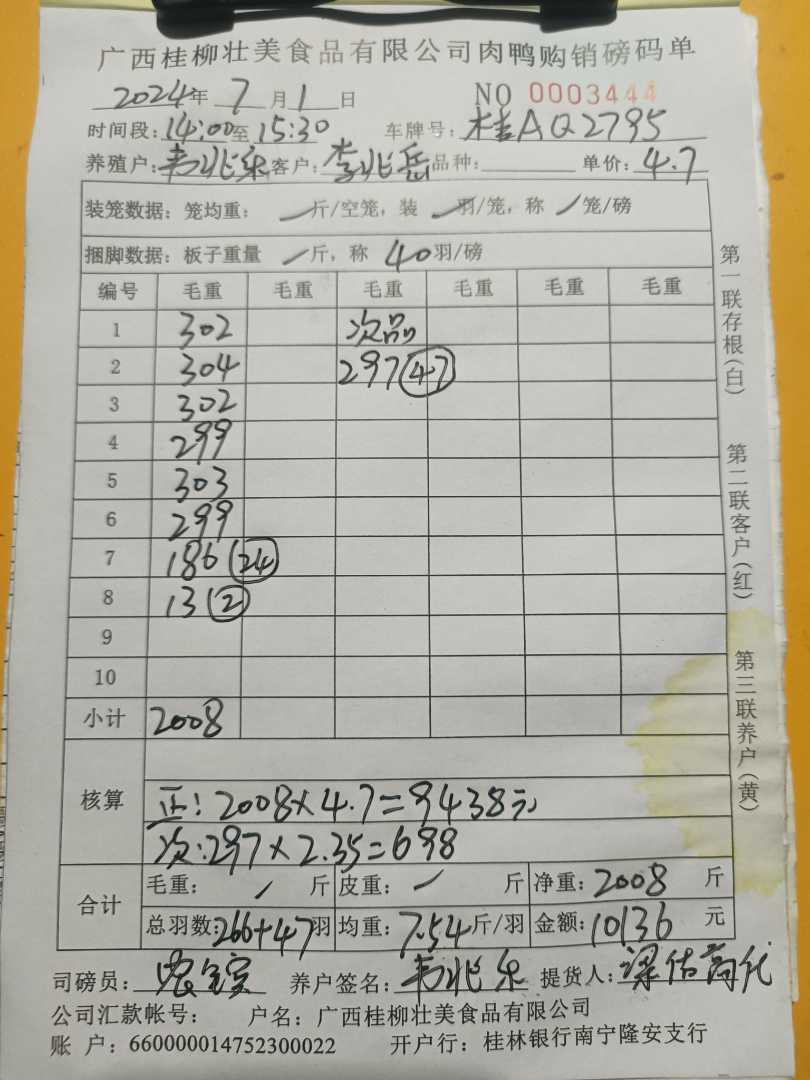 广西桂柳壮美食品有限公司肉鸭购销磅码单
2024年 7月1日 NO 0003444
时间段:14:00至15:30 车牌号:桂AQ2795
养殖户:韦兆乐 客户:李兆岳 品种: 单价:4.7
装笼数据: 笼均重: / 斤/空笼, 装 / 羽/笼, 称 / 笼/磅
捆脚数据: 板子重量 / 斤, 称 40羽/磅
编号 毛重 毛重 毛重 毛重 毛重 毛重
1 302 次品
2 304 297 (47)
3 302
4 299
5 303
6 299
7 186 (24)
8 13 (2)
9
10
小计 2008
核算
正: 2008×4.7=9438元
次:297×2.35=698
合计
毛重: / 斤 皮重: / 斤 净重: 2008 斤
总羽数:266+47羽 均重: 7.54斤/羽 金额: 10136 元
司磅员: 养户签名: 韦兆乐 提货人:
公司汇款帐号: 户名: 广西桂柳壮美食品有限公司
账 户: 660000014752300022 开户行: 桂林银行南宁隆安支行
第一联存根(白)
第二联客户(红)
第三联养户(黄)